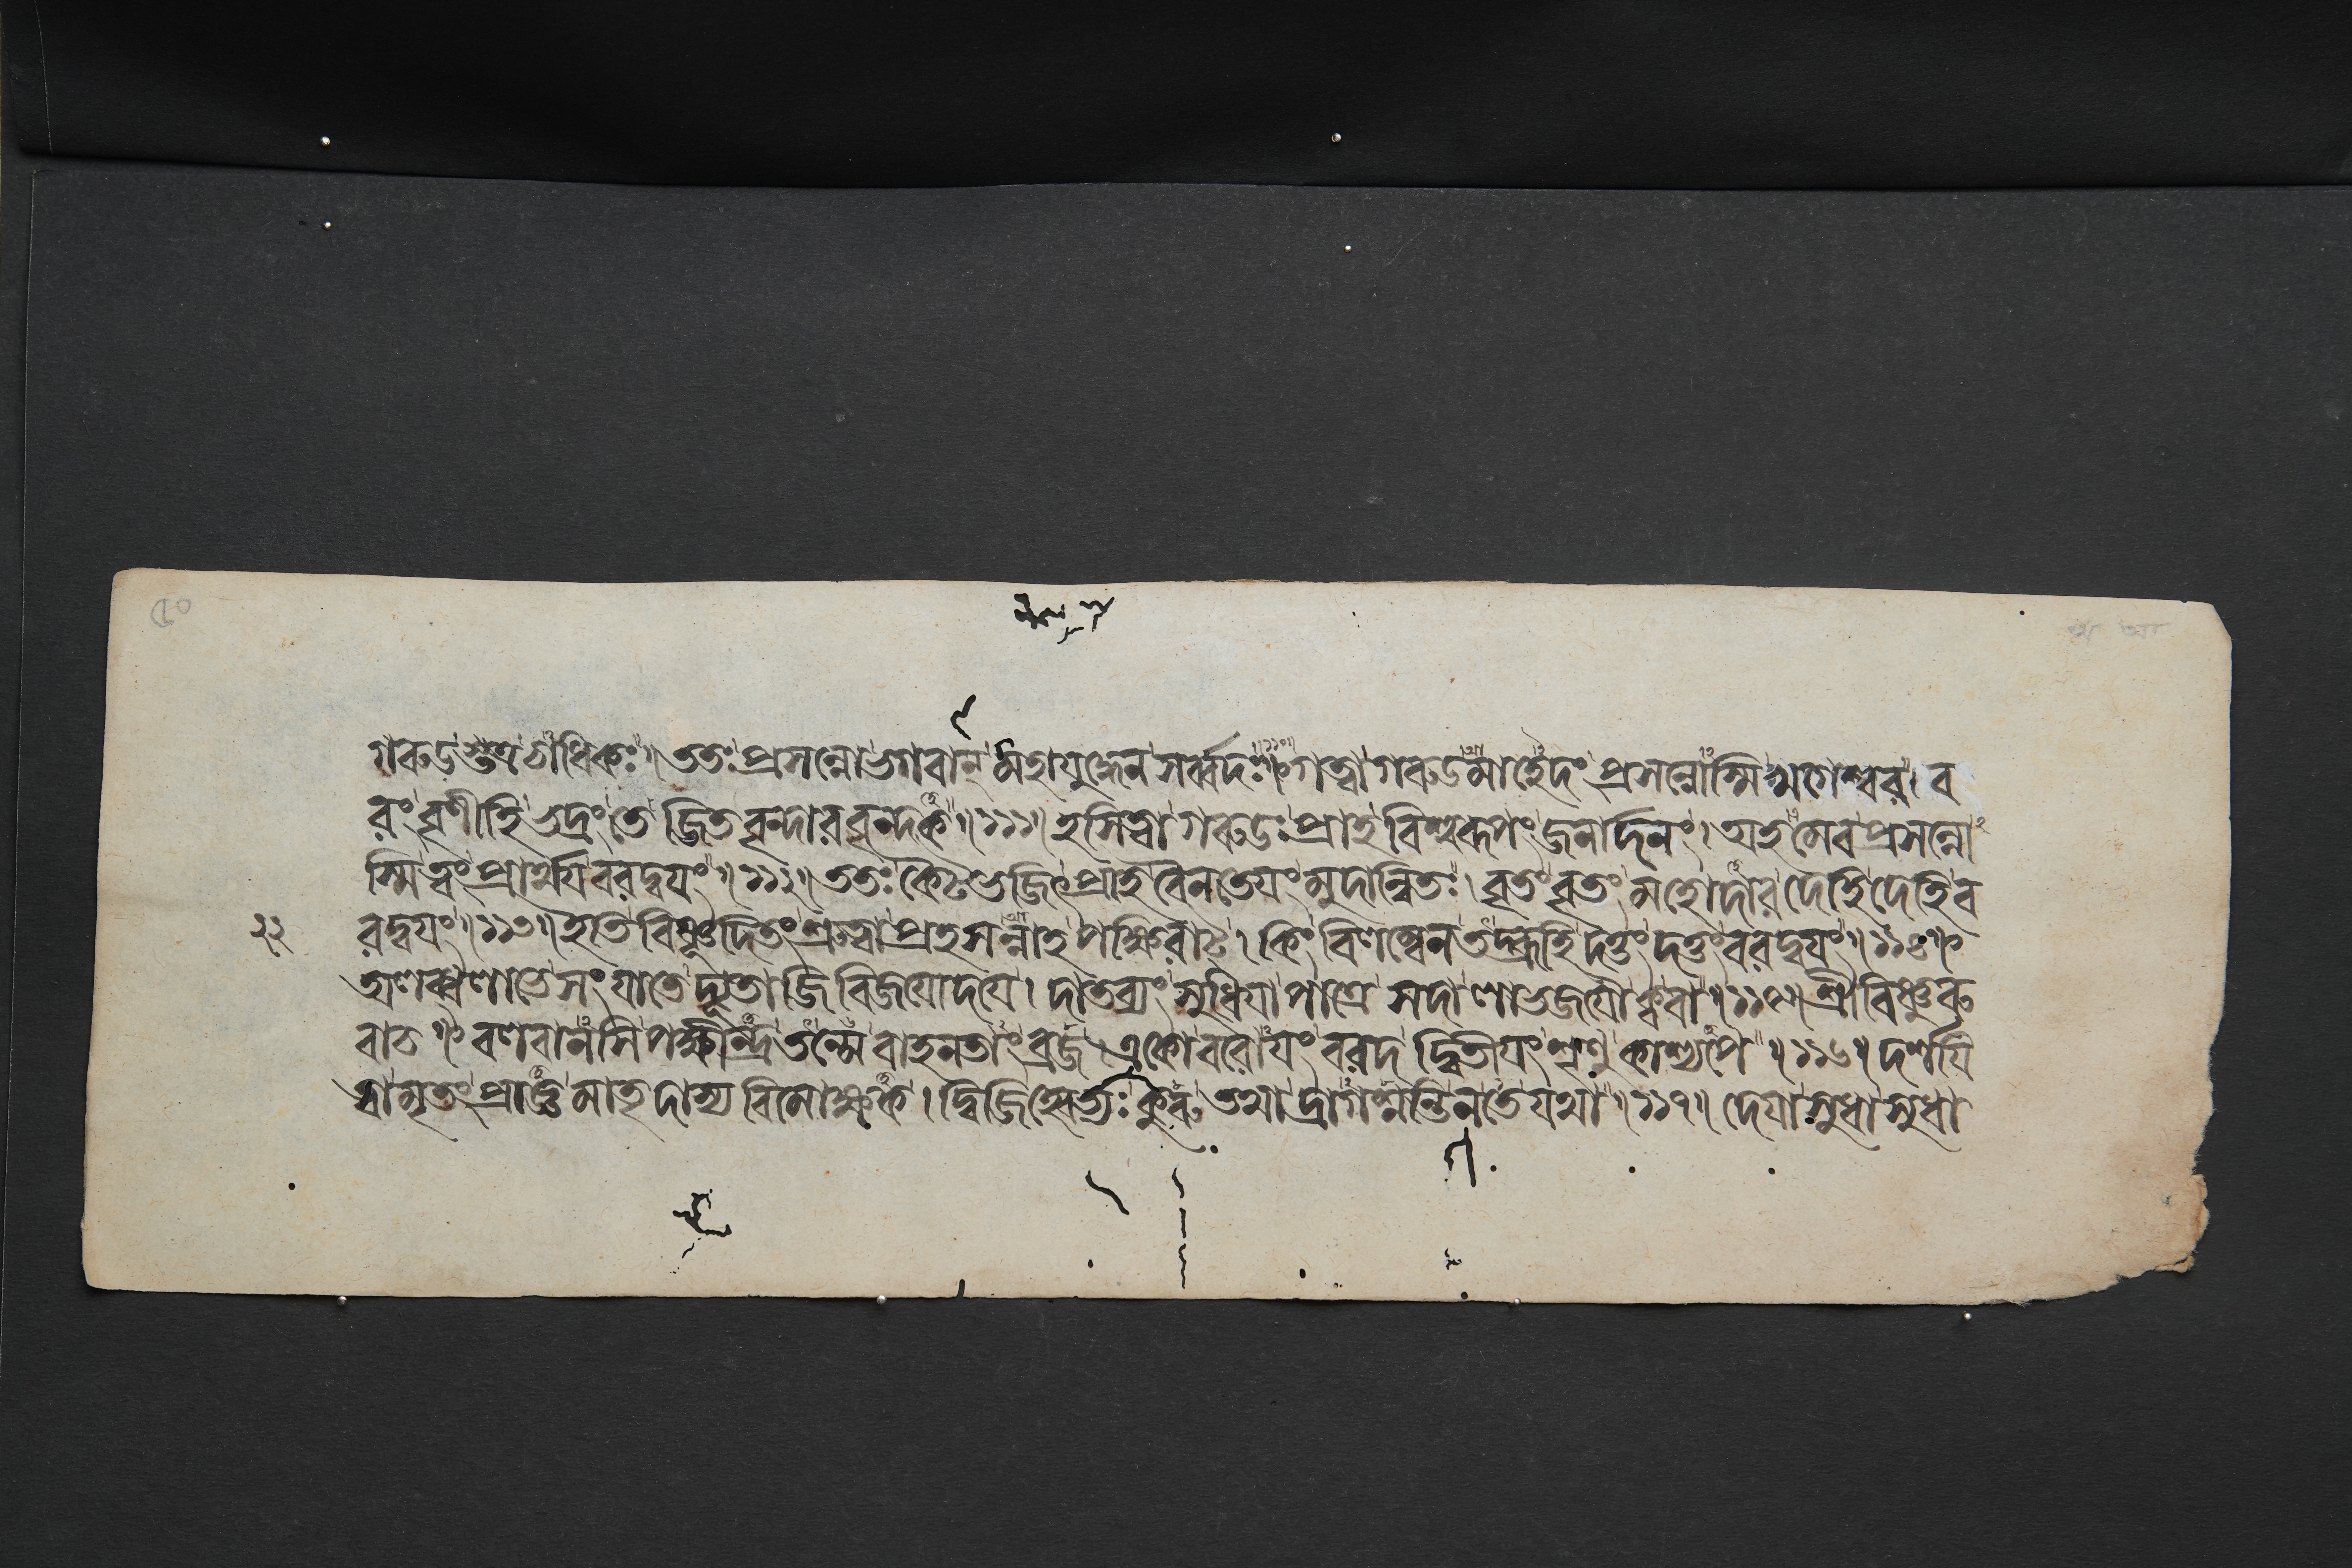 গরুডস্তত্রচাধিকঃ॥ ততঃ প্রসন্নো ভগবান্ মহাযুদ্ধেন সর্ব্বদঃ॥১১০॥ গত্বা গরুডমাহেদং প্রসন্নোস্মি খগেশ্বর। ব
রং বৃণীহি ভদ্রং তে জিতবৃন্দারবৃন্দক॥১১১॥ হসিত্বা গরুডঃ প্রাহ বিশ্বরূপং জনার্দনং। অহমেব প্রসন্নো
স্মি ত্বং প্রার্থয বরদ্বযং॥১১২॥ ততঃ কৈটভজিৎ প্রাহ বৈনতেযং মুদান্বিতঃ। বৃতং বৃতং মহোদার দেহি দেহি ব
২২ রদ্বযং॥১১৩॥ ইতি বিষ্ণূদিতং শ্রুত্বা প্রহসন্নাহ পক্ষিরাট। কিং বিলম্বেন তদ্ব্রূহি দত্তং দত্তং বরদ্বযং॥১১৪॥
অলব্ধলাভে সংযাতে দ্যূতাজিবিজযোদযে। দাতব্যং সুধিযা পাত্রে সদা লাভজযৌ ক্ব বা॥১১৫॥ শ্রীবিষ্ণুরু
বাচ॥ বলবানসি পক্ষীন্দ্র তন্মে বাহনতাং ব্রজ। একো বরোযং বরদ দ্বিতীযং শৃণু কাশ্যপে॥১১৬॥ দর্শযি
ত্বামৃতং প্রাজ্ঞ মাতৃদাস্যবিমোক্ষক। দ্বিজিহ্বেভ্যঃ কুরু তথা দ্রাগশ্নন্তি ন তে যথা॥১১৭॥ দেযা সুধা সুধা